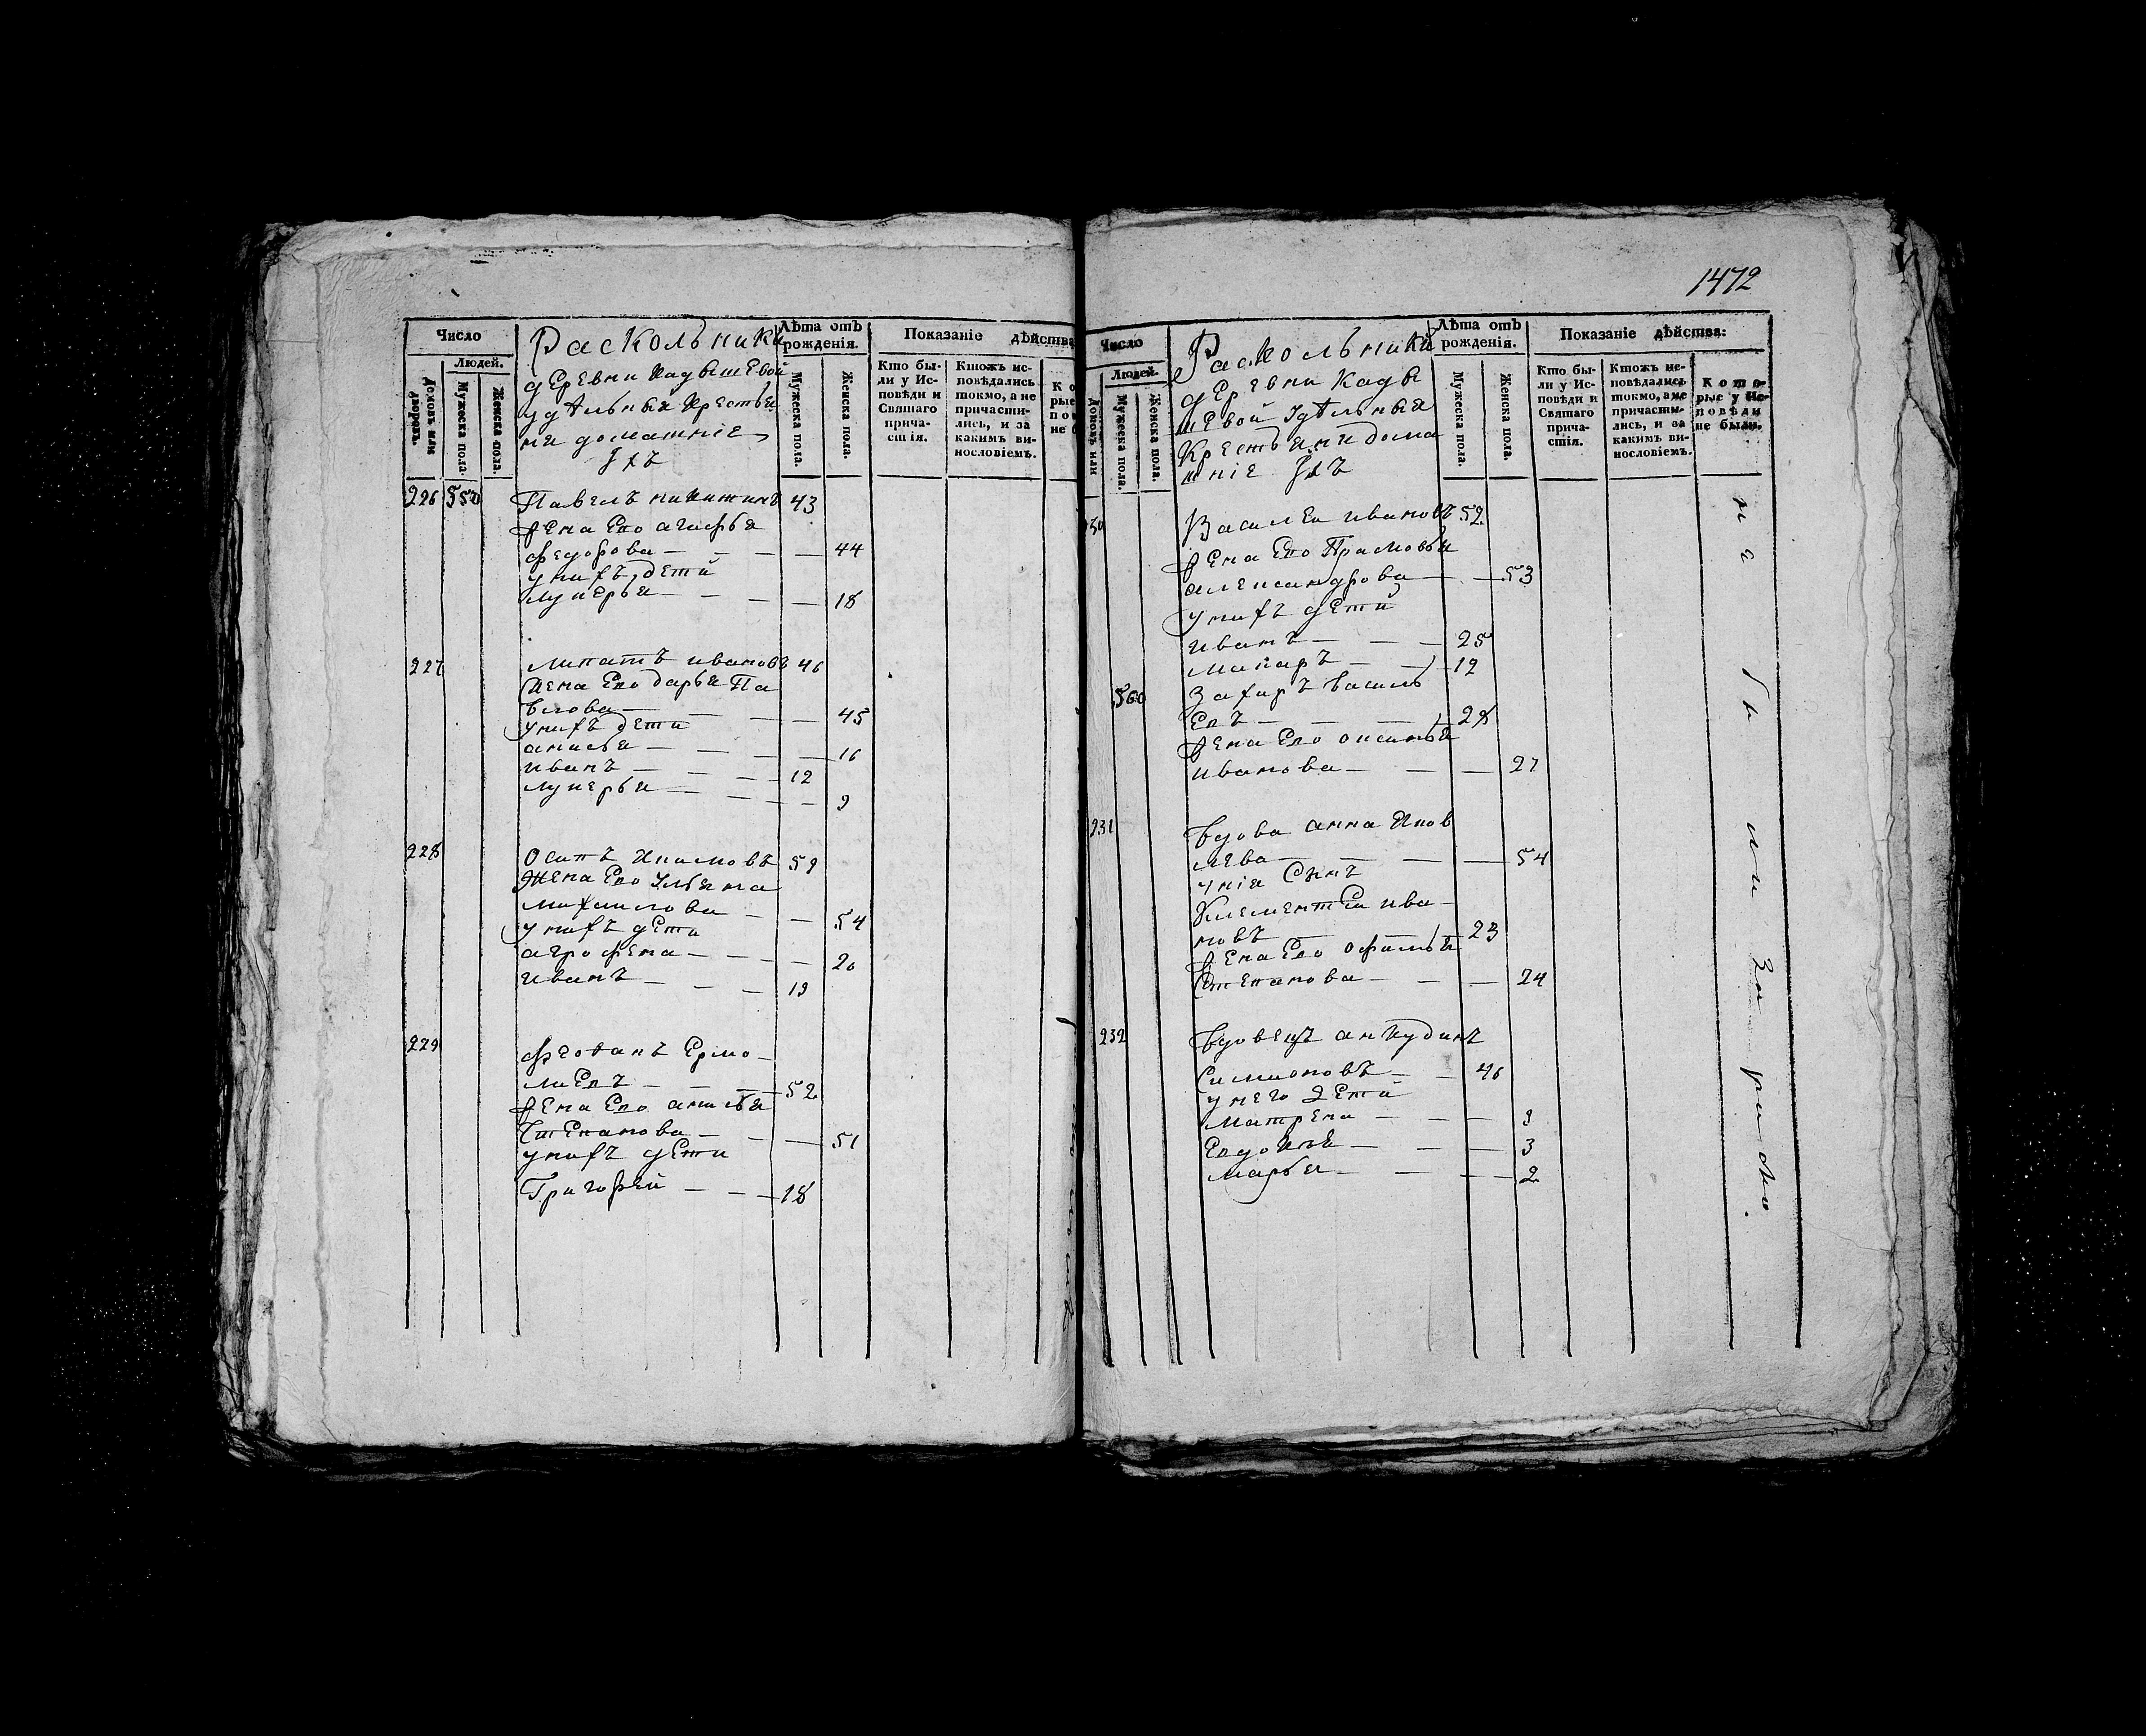 Число
Людей.
Домовъ или дворовъ.
Мужеска пола.
Женска пола.
Раскольники
деревни Кадышевой
удѣльныя крестья
не домашніе
ихъ
Лѣта отъ рожденія.
Мужеска пола.
Женска пола.
Показаніе дѣйства
Кто бы-
ли у Ис-
повѣди и
Святаго
прича-
стія.
Ктожъ ис-
повѣдались
токмо, а не
причасти-
лись, и за
какимъ ви-
нословіемъ.
226 550 Павелъ никитинъ 43
жена Его агафья
федорова — — — — 44
у нихъ дети
лукерья — — — 18
227 липатъ ивановъ 46
жена Его дарья Па
влова — — — — 45
у нихъ дети
анисья — — — 16
иванъ — — — 12
лукерья — — — — 9
228 Осипъ Екимовъ 59
Жена Его Ульяна
михаилова — — 54
у нихъ дети
агрофена — — — — 20
иванъ — — — 19
229 феофанъ Ермо-
лаевъ — — — 52
жена Его анисья
Степанова — — — 51
у нихъ дети
Григорей — — — 18
1472
Число
Людей.
Домовъ или
Мужеска пола.
Женска пола.
Раскольники
деревни Кады
шевой Удѣльныя
Крестьяни дома
шніе ихъ
Лѣта отъ рожденія.
Мужеска пола.
Женска пола.
Показаніе дѣйства:
Кто бы-
ли у Ис-
повѣди и
Святаго
прича-
стія.
Ктожъ ис-
повѣдались
токмо, а не
причасти-
лись, и за
какимъ ви-
нословіемъ.
Кото-
рые у Ис-
повѣди
не были.
230 Василеи ивановъ 52
жена Его Прасковья
александрова — — 53
у нихъ дети
иванъ — — — 25
макаръ — — 12
560 Захаръ васильь
евъ — — — 28
жена Его оксинья
иванова — — — 27
231 вдова анна Яков
лева — — — — 54
у нія Сынъ
Клементеи ива-
новъ — — — 23
жена Его офимья
Степанова — — — 24
232 вдовецъ анкудинъ
Симионовъ — — 46
у него Дети
матрена — — — 9
Евдокѣя — — — 3
марья — — — — 2
не
были
за